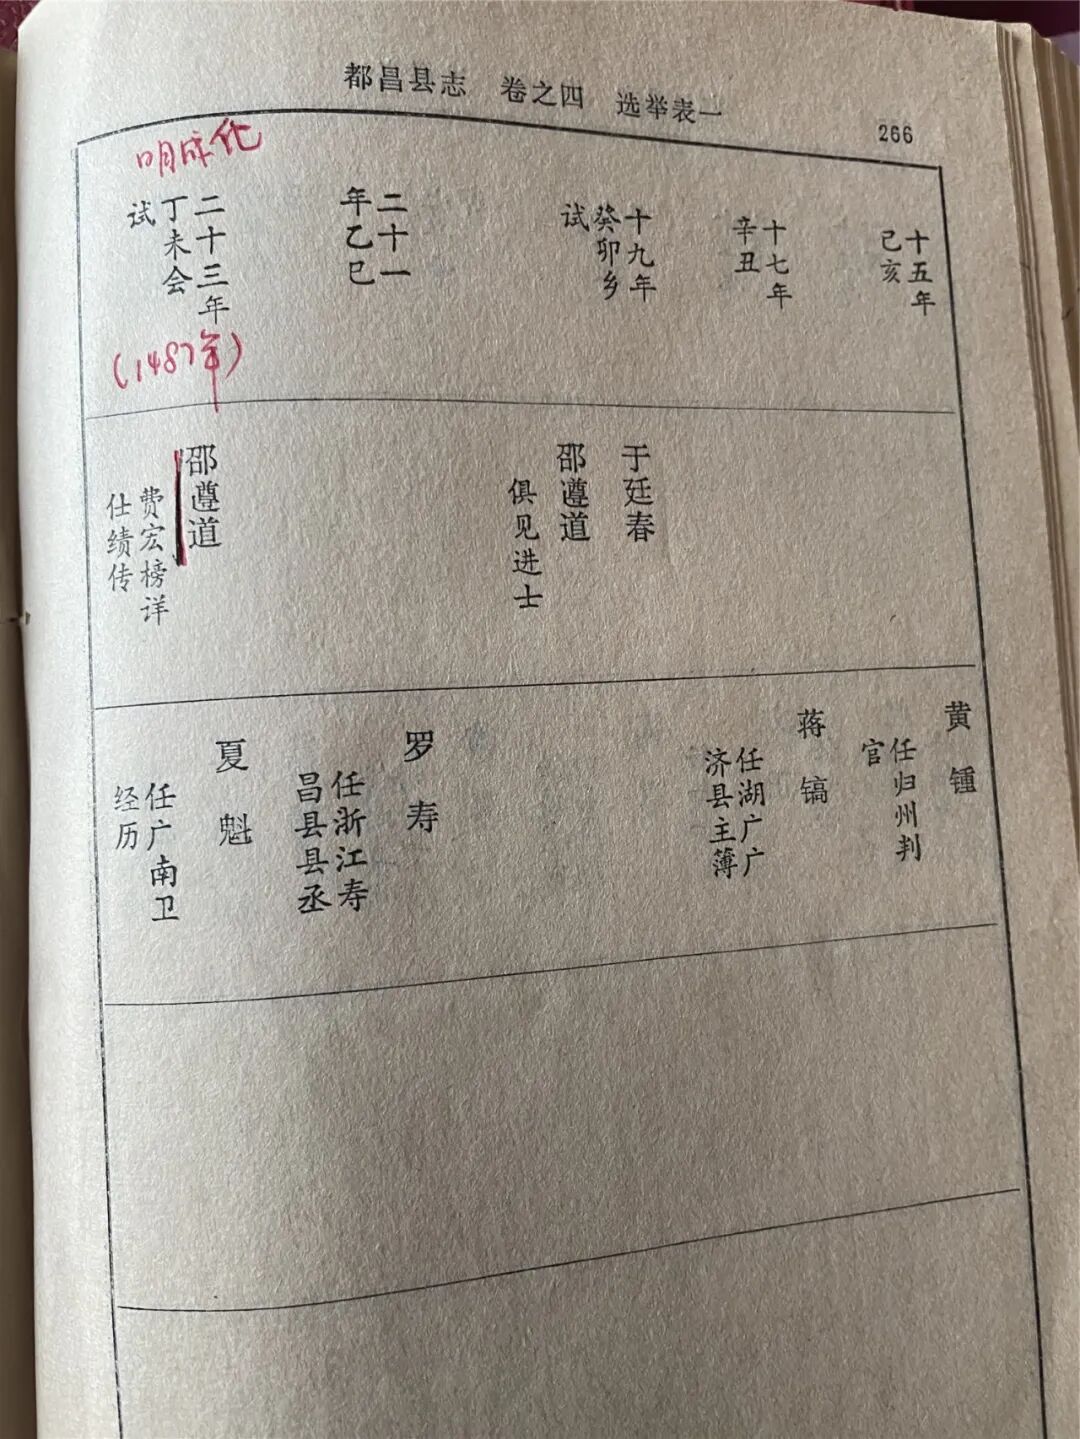 都昌县志 卷之四 选举表一
266
十五年
己亥
十七年
辛丑
十九年
癸卯乡
试
二十一
年乙巳
明成化
二十三年
丁未会
试
(1487年)
于廷春
邵遵道
俱见进士
邵遵道
费宏榜详
仕绩传
黄锺
任归州判
官
蒋镐
任湖广广
济县主簿
罗寿
任浙江寿
昌县县丞
夏魁
任广南卫
经历